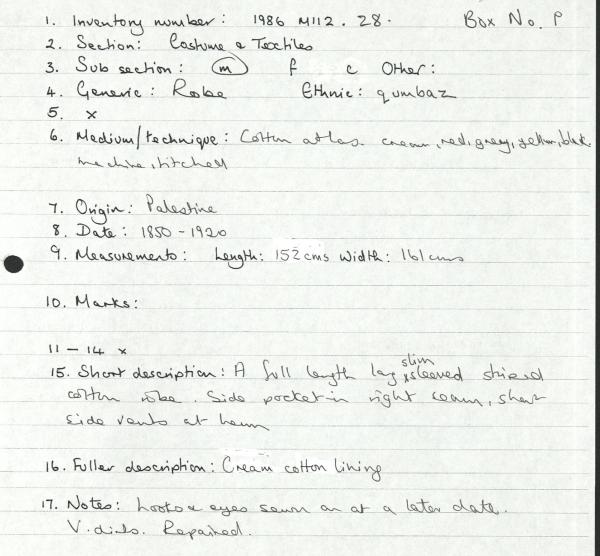 1. Inventory number: 1986 M112.28. Box No. P
2. Section: Costume & Textiles
3. Sub section: m f c Other:
4. Generic: Robe Ethnic: qumbaz
5. x
6. Medium/technique: Cotton atlas. cream, red, grey, yellow, black.
machine stitched
7. Origin: Palestine
8. Date: 1850-1920
9. Measurements: Length: 152 cms Width: 161 cms
10. Marks:
11 - 14 x
15. Short description: A full length long slim sleeved striped
cotton robe. Side pocket in right seam, short
side vents at hem
16. Fuller description: Cream cotton lining
17. Notes: hooks & eyes sewn on at a later date.
Repaired.